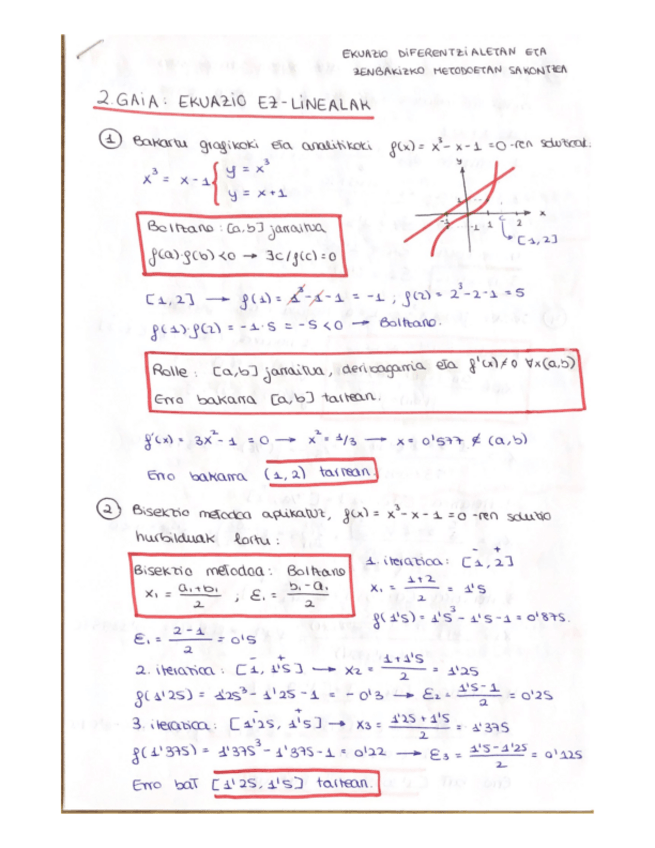 EKUAZIO DIFERENTZIALETAN ETA
ZENBAKIZKO METODOETAN SAKONTZEA
2.GAIA: EKUAZIO EZ-LINEALAK
① Bakartu grafikoki eta analitikoki f(x) = x³ - x - 1 = 0 -ren soluzioak.
x³ = x - 1 { y = x³
y = x + 1
y
x
-1 1 2
[1,2]
Boltzano: [a,b] jarraitua
f(a)·f(b) < 0 → ∃c / f(c) = 0
[1,2] → f(1) = 1³ - 1 - 1 = -1 ; f(2) = 2³ - 2 - 1 = 5
f(1)·f(2) = -1·5 = -5 < 0 → Boltzano.
Rolle: [a,b] jarraitua, deribagarria eta f'(x) ≠ 0 ∀x(a,b)
Erro bakarra [a,b] tartean.
f'(x) = 3x² - 1 = 0 → x² = 1/3 → x = 0'577 ∉ (a,b)
Erro bakarra (1,2) tartean.
② Bisekzio metodoa aplikatuz, f(x) = x³ - x - 1 = 0 -ren soluzio
hurbilduak lortu:
Bisekzio metodoa: Boltzano
x₁ = (a₁+b₁)/2 ; ε₁ = (b₁-a₁)/2
1. iterazioa: [1, 2]
- +
x₁ = (1+2)/2 = 1'5
f(1'5) = 1'5³ - 1'5 - 1 = 0'875.
ε₁ = (2-1)/2 = 0'5
- +
2. iterazioa: [1, 1'5] → x₂ = (1+1'5)/2 = 1'25
f(1'25) = 1'25³ - 1'25 - 1 = -0'3 → ε₂ = (1'5-1)/2 = 0'25
- +
3. iterazioa: [1'25, 1'5] → x₃ = (1'25+1'5)/2 = 1'375
f(1'375) = 1'375³ - 1'375 - 1 = 0'22 → ε₃ = (1'5-1'25)/2 = 0'125
Erro bat [1'25, 1'5] tartean.